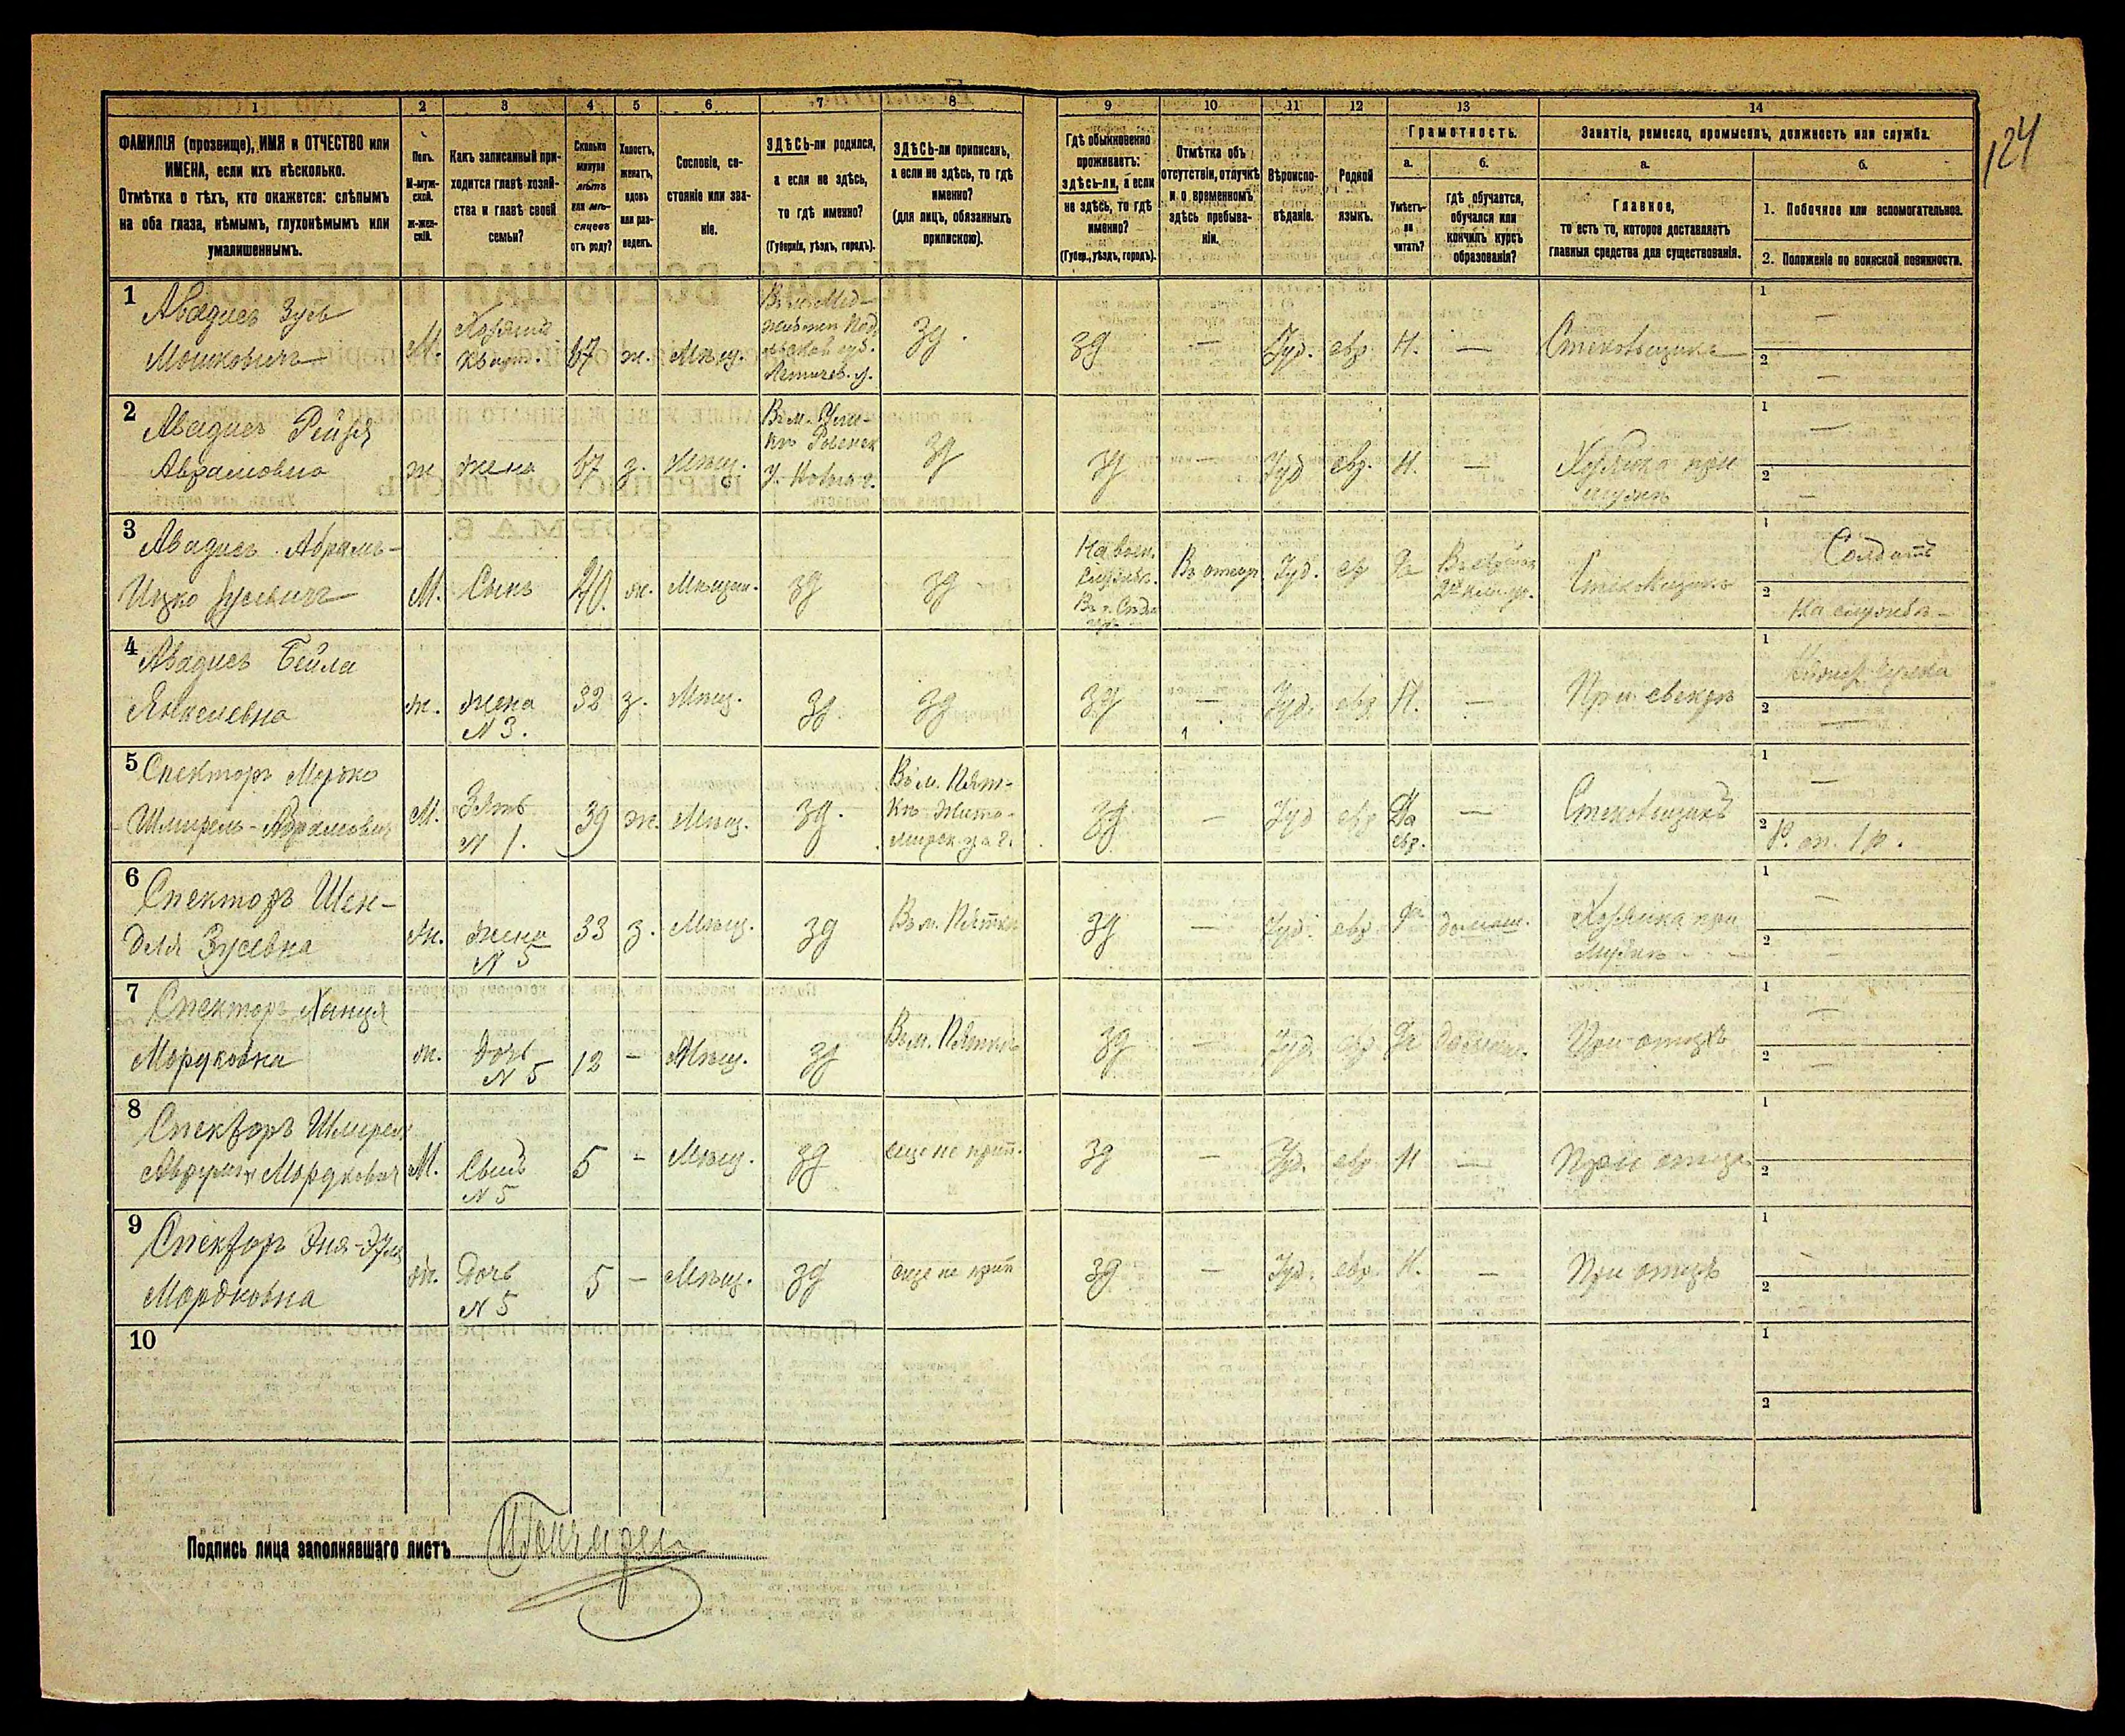 124
1
2
3
4
5
6
7
8
9
10
11
12
13
14
ФАМИЛІЯ (прозвище), ИМЯ и ОТЧЕСТВО или
ИМЕНА, если ихъ нѣсколько.
Отмѣтка о тѣхъ, кто окажется: слѣпымъ
на оба глаза, нѣмымъ, глухонѣмымъ или
умалишеннымъ.
Полъ.
М-муж-
ской.
ж-жен-
скій.
Какъ записанный при-
ходится главѣ хозяй-
ства и главѣ своей
семьи?
Сколько
минуло
лѣтъ
или мѣ-
сяцевъ
отъ роду?
Холостъ,
женатъ,
вдовъ
или раз-
веденъ.
Сословіе, со-
стояніе или зва-
ніе.
ЗДѢСЬ-ли родился,
а если не здѣсь,
то гдѣ именно?
(Губернія, уѣздъ, городъ).
ЗДѢСЬ-ли приписанъ,
а если не здѣсь, то гдѣ
именно?
(для лицъ, обязанныхъ
припискою).
Гдѣ обыкновенно
проживаетъ:
здѣсь-ли, а если
не здѣсь, то гдѣ
именно?
(Губер., уѣздъ, городъ).
Отмѣтка объ
отсутствіи, отлучкѣ
и о временномъ
здѣсь пребыва-
ніи.
Вѣроиспо-
вѣданіе.
Родной
языкъ.
Грамотность.
а.
б.
Умѣетъ-
ли
читать?
гдѣ обучается,
обучался или
кончилъ курсъ
образованія?
Занятіе, ремесло, промыселъ, должность или служба.
а.
б.
Главное,
то есть то, которое доставляетъ
главныя средства для существованія.
1. Побочное или вспомогательное.
2. Положеніе по воинской повинности.
1
Авадиев Зусь
Мошковичъ
М.
Хозяинъ
67
ж.
Мѣщ.
зд.
зд
—
Іуд.
евр
Н.
—
Стекольщикъ
1
—
2
—
2
Авадиев Рейзя
Абрамовна
ж
жена
67
з.
Мѣщ.
зд
зд
—
Іуд
евр.
Н.
—
Хозяйка при
мужѣ
1
—
2
—
3
Авадиев Абрамъ-
Ицко Зусевичъ
М.
Сынъ
40.
ж.
Мѣщан.
зд
зд
На воен.
службѣ.
Іуд.
ев
Да
Стекольщикъ
1
Солдатъ
2
На службѣ
4
Авадиев Бейла
Янкелевна
ж.
жена
N 3.
32
з.
Мѣщ.
зд.
зд
зд
—
Іуд.
евр.
Н.
—
При свекрѣ
1
2
—
5
Спекторъ Мордко
Шмирель-Абрамович
М.
Зять
N 1.
39
ж.
Мѣщ.
зд.
Въ м. Пят-
кѣ Жито-
мирск.
зд
—
Іуд
евр
Да
евр.
—
Стекольщикъ
1
—
2
6
Спекторъ Шен-
деля Зусевна
ж.
жена
N 5
33
з.
Мѣщ.
зд
Въ м. Пяткѣ
зд
—
Іуд.
евр
да
домаш.
Хозяйка при
мужѣ
1
—
2
—
7
Спекторъ Ханця
Мордковна
ж.
Дочь
N 5
12
—
Мѣщ.
зд
Въ м. Пяткѣ
зд
—
Іуд.
евр
Да
домаш.
При отцѣ
1
—
2
—
8
Спекторъ Шмирель
Мордкович
М.
Сынъ
N 5
5
-
Мѣщ.
зд
еще не прип.
зд
—
Іуд.
евр
Н
—
При отцѣ
1
2
9
Спекторъ
Мордковна
ж.
Дочь
N 5
5
—
Мѣщ.
зд
еще не прип
зд
—
Іуд.
евр.
Н.
—
При отцѣ
1
2
10
1
2
Подпись лица заполнявшаго листъ